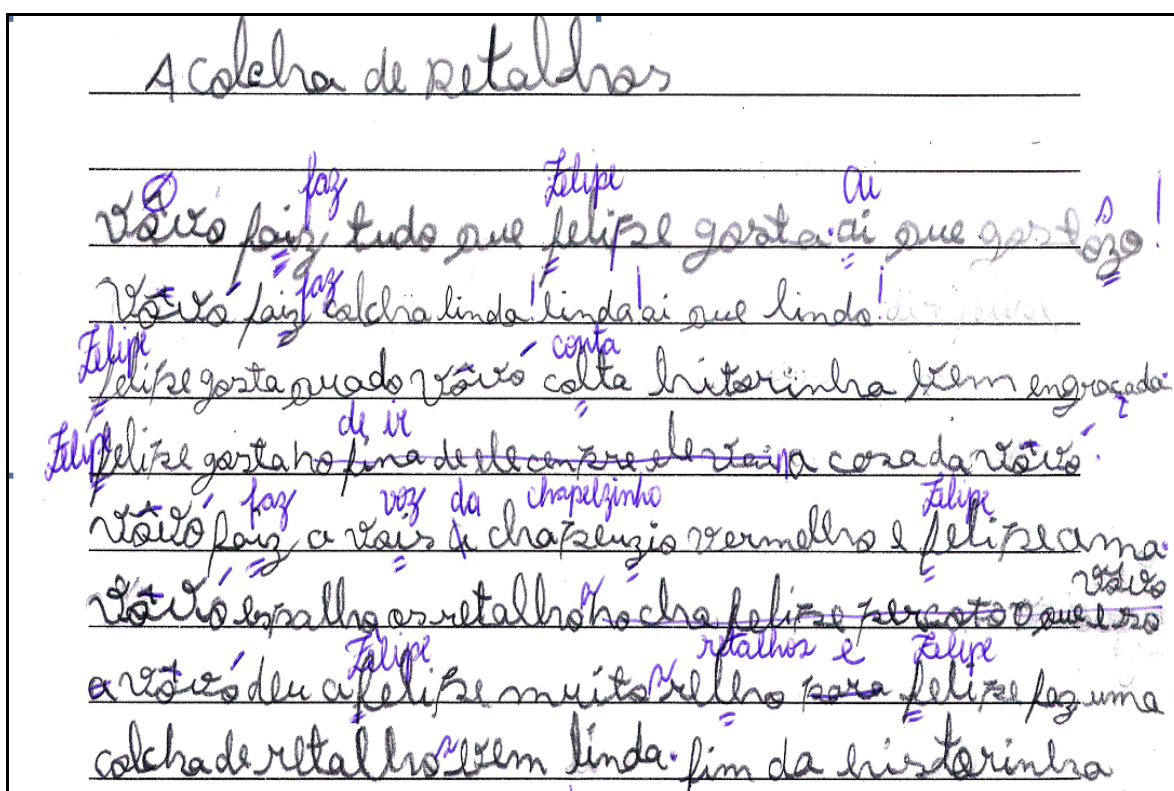 A colcha de Retalhos
faz Felipe Ai
Vôvó faiz tudo que felipe gosta. ai que gostozo!
faz
Vôvó faiz colcha linda! linda! ai que lindo!
Felipe conta
felipe gosta quado vôvó colta hitorinha bem engraçada.
de ir
Felipe felipe gosta no fina de ele cenpre ele vai na casa da vôvó.
faz voz da chapelzinho Felipe
Vôvó faiz a vois chapeuzio vermelho e felipe ama.
vôvó
Vôvó espalho os retalhos no cha felipe
Felipe retalhos e Felipe
a vôvó deu a felipe muitos relho para felipe faz uma
colcha de retalhos bem linda. fim da historinha